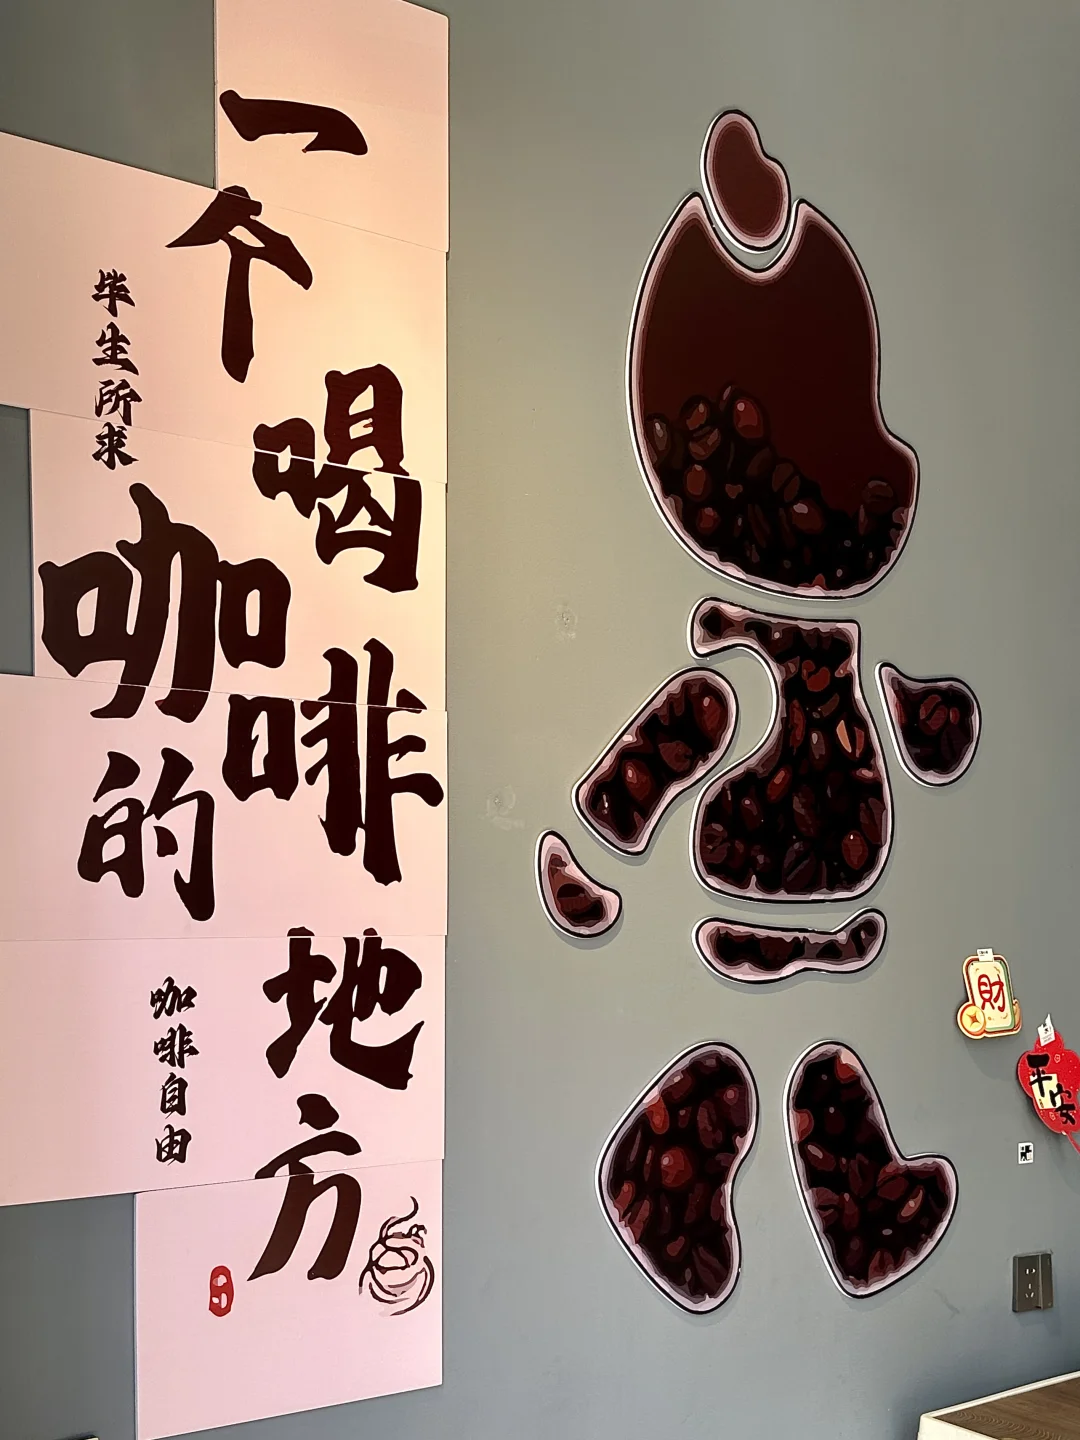 一个喝咖啡的地方
毕生所求
咖啡自由
财
平安